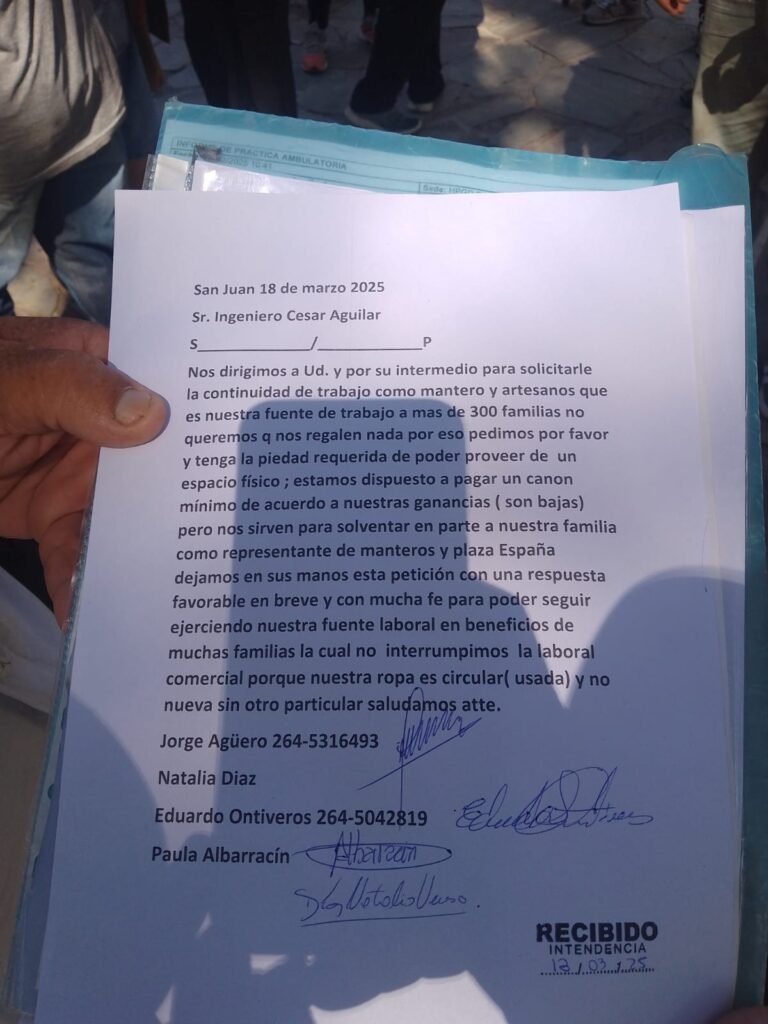 INFORME DE PRACTICA AMBULATORIA
San Juan 18 de marzo 2025
Sr. Ingeniero Cesar Aguilar
S____________/___________P
Nos dirigimos a Ud. y por su intermedio para solicitarle
la continuidad de trabajo como mantero y artesanos que
es nuestra fuente de trabajo a mas de 300 familias no
queremos q nos regalen nada por eso pedimos por favor
y tenga la piedad requerida de poder proveer de un
espacio físico ; estamos dispuesto a pagar un canon
mínimo de acuerdo a nuestras ganancias ( son bajas)
pero nos sirven para solventar en parte a nuestra familia
como representante de manteros y plaza España
dejamos en sus manos esta petición con una respuesta
favorable en breve y con mucha fe para poder seguir
ejerciendo nuestra fuente laboral en beneficios de
muchas familias la cual no interrumpimos la laboral
comercial porque nuestra ropa es circular( usada) y no
nueva sin otro particular saludamos atte.
Jorge Agüero 264-5316493
Natalia Diaz
Eduardo Ontiveros 264-5042819
Paula Albarracín
RECIBIDO
INTENDENCIA